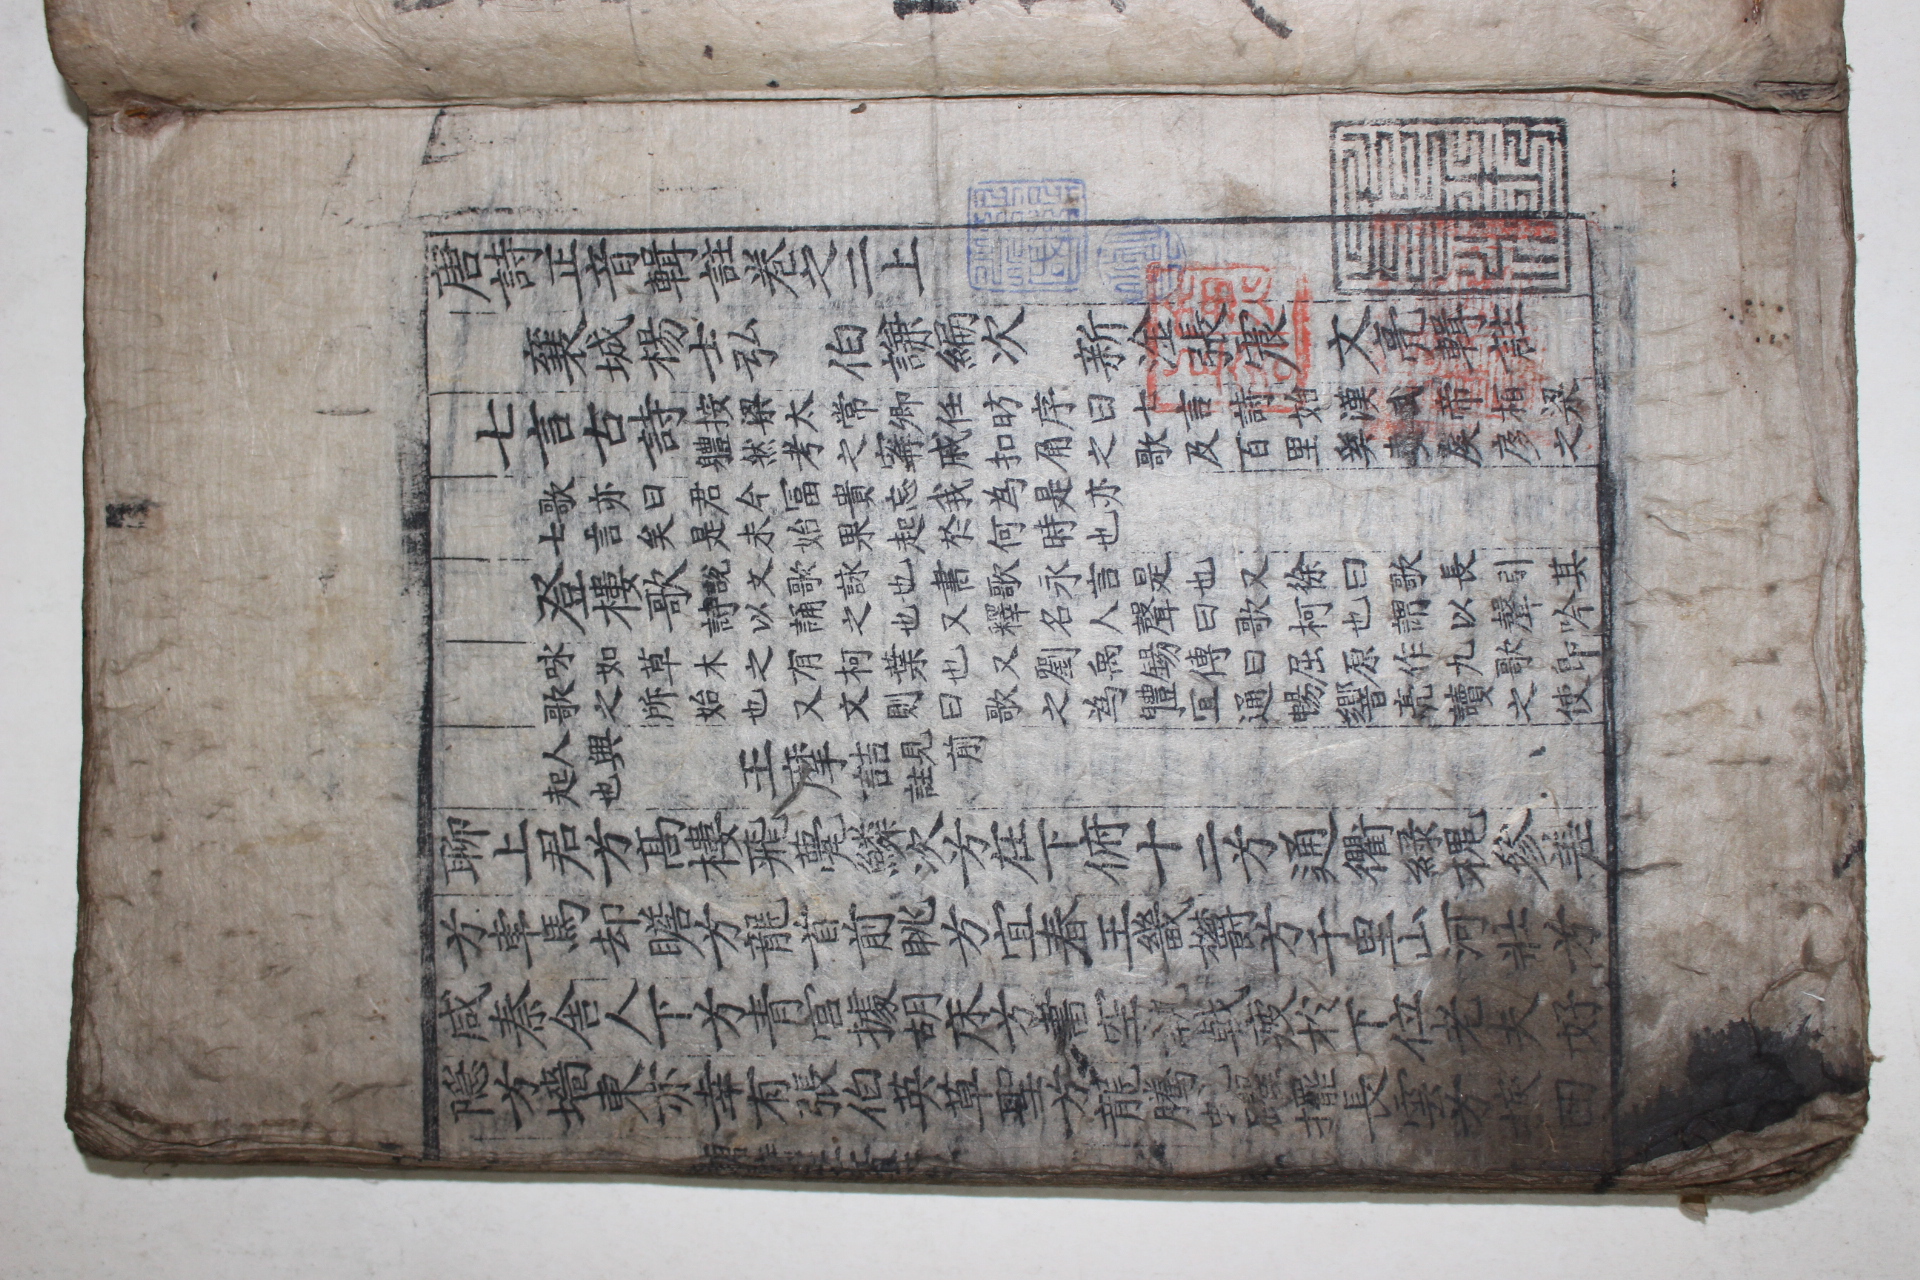 唐詩正音輯註卷之二上
襄城楊士弘 伯謙編次 新淦張震 文亮輯註
七言古詩
按梁太常卿任昉序曰七言詩始漢武帝栢梁
體然考之寗戚扣角之歌及百里奚妻扊扅之
歌亦曰君今冨貴忘我為是亦
七言矣是未始果起於何時也
登樓歌
說文歌詠也書歌永言是也又徐曰歌長引其
詩以誦之也又釋名人聲曰歌柯也謂以聲吟
咏如草木之有柯葉也又劉禹錫傳曰屈原作九歌即
歌之所始也又文則曰歌之為體冝通暢響亮讀之使
人興
起也
王摩詰
見前
註
聊上君兮髙樓飛甍鱗次兮在下俯十二兮通衢綠槐參差
兮車馬却瞻兮龍首前眺兮宜春王畿欝兮千里山河壯兮
咸秦舍人下兮青宫據胡床兮書空執戟疲於下位老夫好
隱兮墻東亦幸有張伯英草聖兮龍騰虬躍擺長雲兮捩回